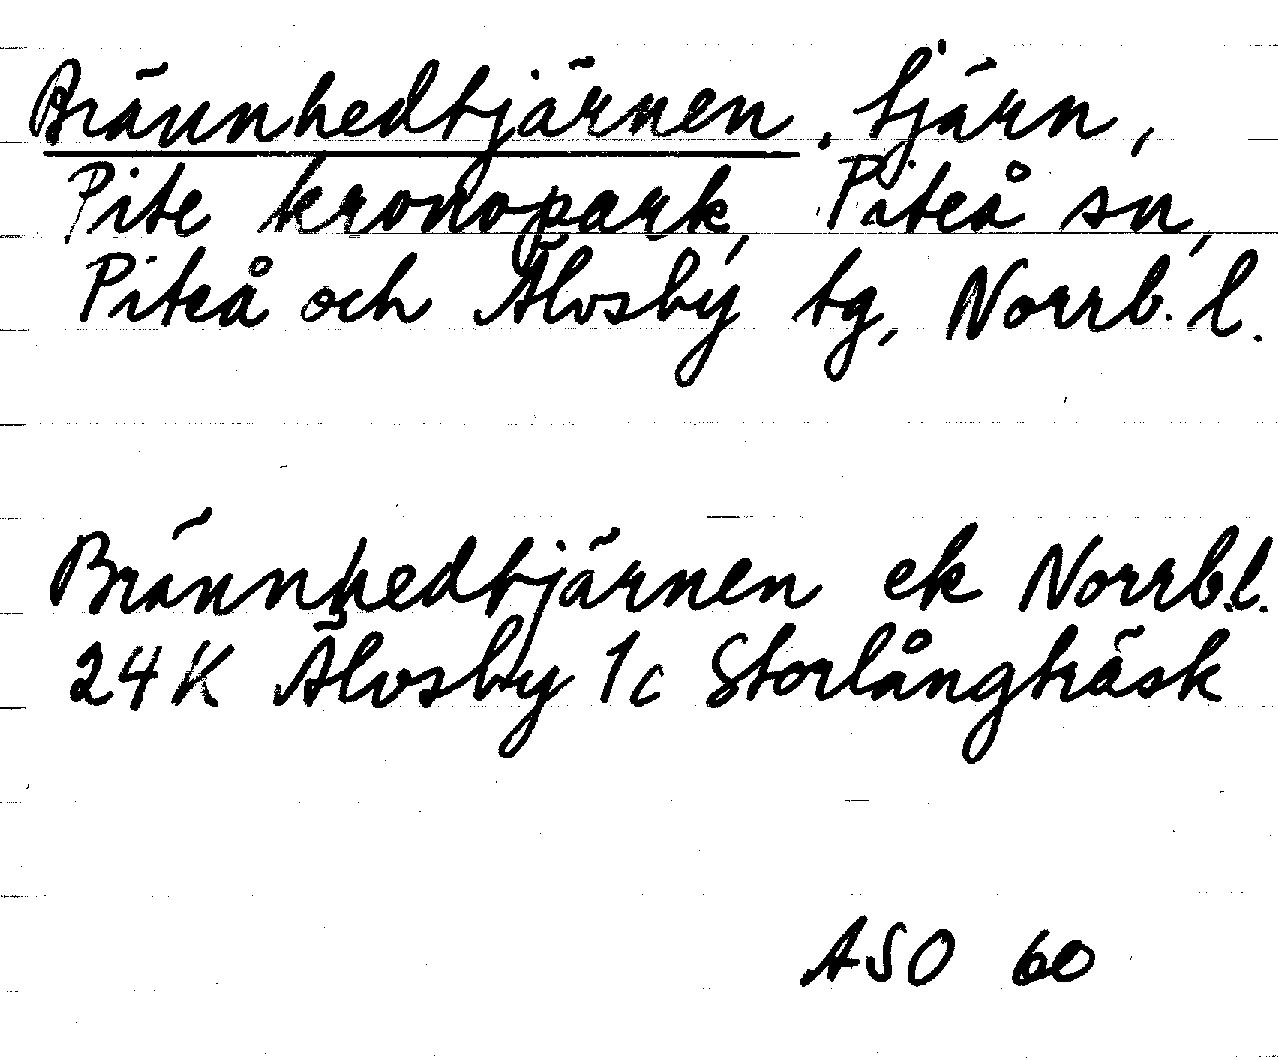 Brännhedtjärnen, tjärn,
Pite kronopark, Piteå sn,
Piteå och Älvsby tg, Norrb. l.
Brännhedtjärnen ek Norrb.l.
24K Älvsby 1c Storlångträsk
ASO 60